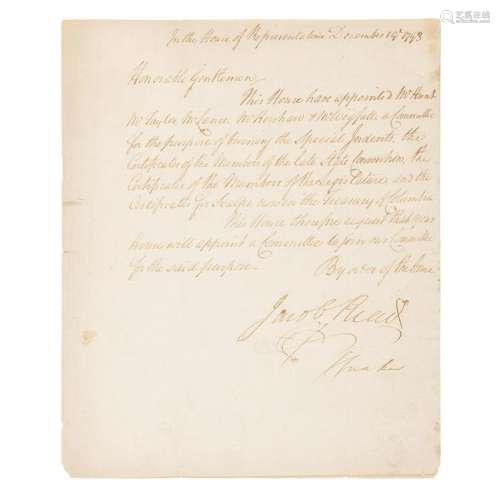 In the House of Representatives December 19th 1793
Honorable Gentlemen,
This House have appointed Mr
Mr Taylor Mr Lance Mr Kershaw & Mr Wigfall a Committee
for the purpose of burning the Special Indents, the
Certificates of the Members of the late State Convention, the
Certificates of the Members of the Legislature and the
Certificates for Scalps now in the Treasury of Columbia
This House therefore request that your
House will appoint a Committee to join our Committee
for the said purpose.
By order of the House
Jacob Read
Speaker